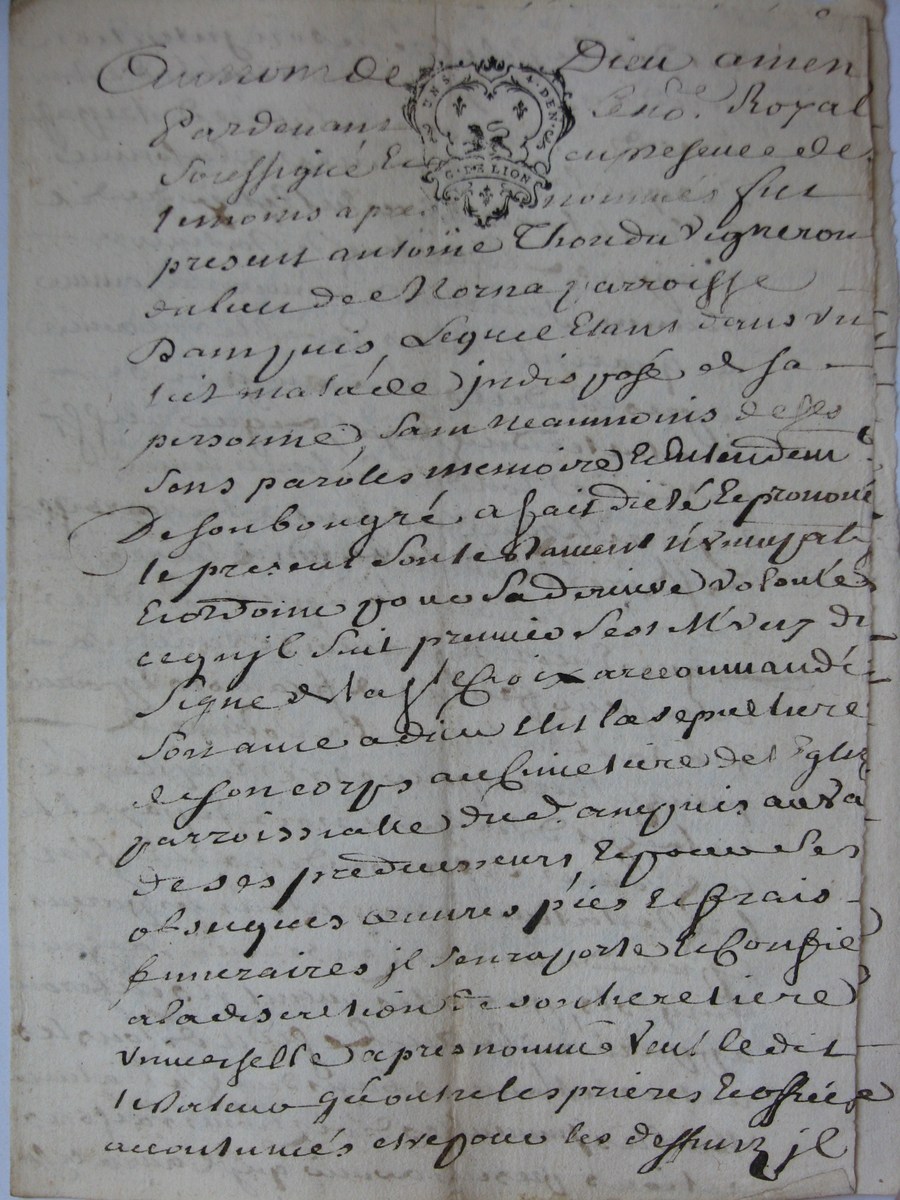 Au nom de Dieu amen
Pardevant Le no.e Royal
soussigné Et en presence des
temoins apres nommés fut
present antoine Thondu vigneron
du lieu de Morna parroisse
Dampuis, Lequel Etant dans un
lit malade jndisposé de sa
personne, sain neaumoins de ses
sens paroles memoire Et Entendem.t
De son bon gré a fait dicté Et prononcé
le present son testament
Et ordonne pour sa Derniere volontée
ce qu'jl suit premier s'est Muny du
signe de la s.te Croix a recommandé
son ame a dieu Elit la sepulture
de son corps au Cimetiere de l'Eglize
parroissialle dud. ampuis au va
de ses predecesseurs, Et pour Ses
obseques œuvres piés Et frais
funeraires jl s'en raporte Et Confie
a la discretion de son heretiere
vniverselle apres nommé veut le dit
testateur qu'outre les prieres Et office
accoutumés etre pour les deffunz jl
UNS. 4. DEN.
G. DE LION